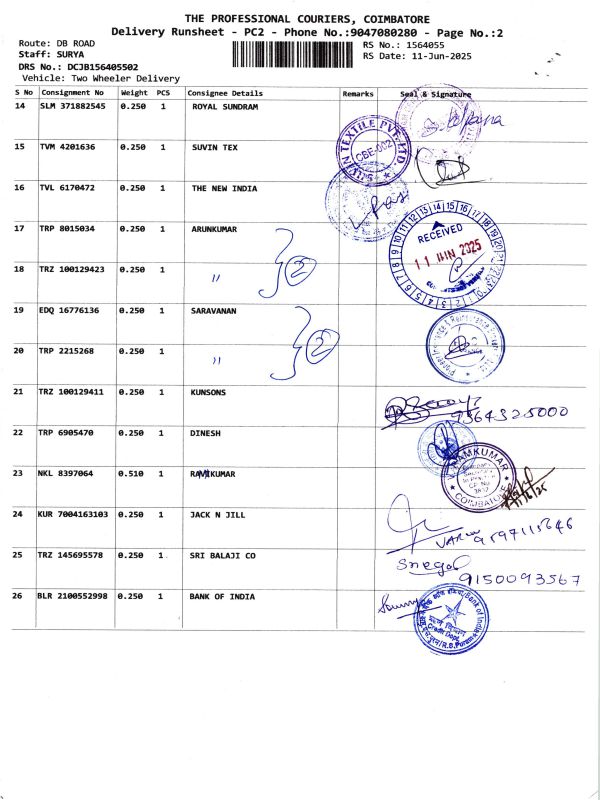 THE PROFESSIONAL COURIERS, COIMBATORE
Delivery Runsheet - PC2 - Phone No.:9047080280 - Page No.:2
Route: DB ROAD
RS No.: 1564055
Staff: SURYA
RS Date: 11-Jun-2025
DRS No.: DCJB156405502
Vehicle: Two Wheeler Delivery
S No Consignment No Weight PCS Consignee Details Remarks Seal & Signature
14 SLM 371882545 0.250 1 ROYAL SUNDRAM
15 TVM 4201636 0.250 1 SUVIN TEX
SUVIN TEXTILE PVT. LTD.
CBE-002
16 TVL 6170472 0.250 1 THE NEW INDIA
17 TRP 8015034 0.250 1 ARUNKUMAR
2
RECEIVED
11 JUN 2025
18 TRZ 100129423 0.250 1 "
19 EDQ 16776136 1 SARAVANAN
0.250
2
20 TRP 2215268 0.250 1 "
21 TRZ 100129411 0.250 1 KUNSONS
9364325000
22 TRP 6905470 0.250 1 DINESH
23 NKL 8397064 0.510 1 RAMKUMAR
RAMKUMAR
COIMBATORE
24 KUR 7004163103 0.250 1 JACK N JILL
9597115646
25 TRZ 145695578 0.250 1 SRI BALAJI CO
Snegal
9150093567
26 BLR 2100552998 0.250 1 BANK OF INDIA
Bank of India
Credit Dept.
R.S.Puram